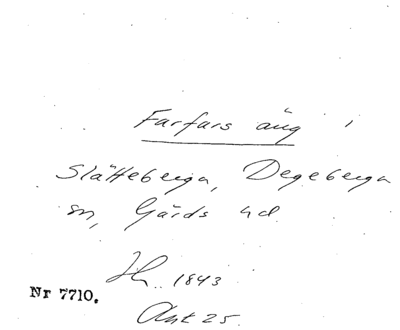 Farfars äng i
Slätteberga, Degeberga
sn, Gärds hd
1843
Nr 7710.
Akt 25.